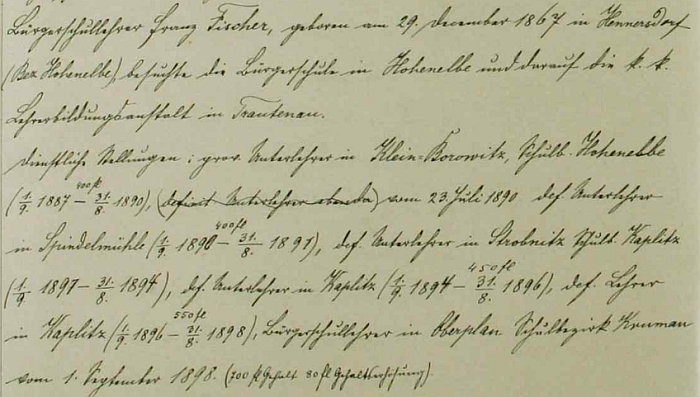 Bürgerschullehrer Franz Fischer, geboren am 29. December 1867 in Hennersdorf
(Bez. Hohenelbe), besuchte die Bürgerschule in Hohenelbe und darauf die k. k.
Lehrerbildungsanstalt in Trautenau.
Dienstliche Stellungen: prov. Unterlehrer in Klein-Borowitz, Schulb. Hohenelbe
400 fl
(1./9. 1887 – 31./8. 1890), (definit. Unterlehrer ebenda) vom 23. Juli 1890 def. Unterlehrer
400 fl
in Spindelmühle (1./9. 1890 – 31./8. 1891), def. Unterlehrer in Strobnitz Schulb. Kaplitz
450 fl
(1./9. 1897 – 31./8. 1894), def. Unterlehrer in Kaplitz (1./9. 1894 – 31./8. 1896), def. Lehrer
550 fl
in Kaplitz (1./9. 1896 – 31./8. 1898), Bürgerschullehrer in Oberplan Schulbezirk Krumau
vom 1. September 1898. (700 fl Gehalt 80 fl Gehaltserhöhung).